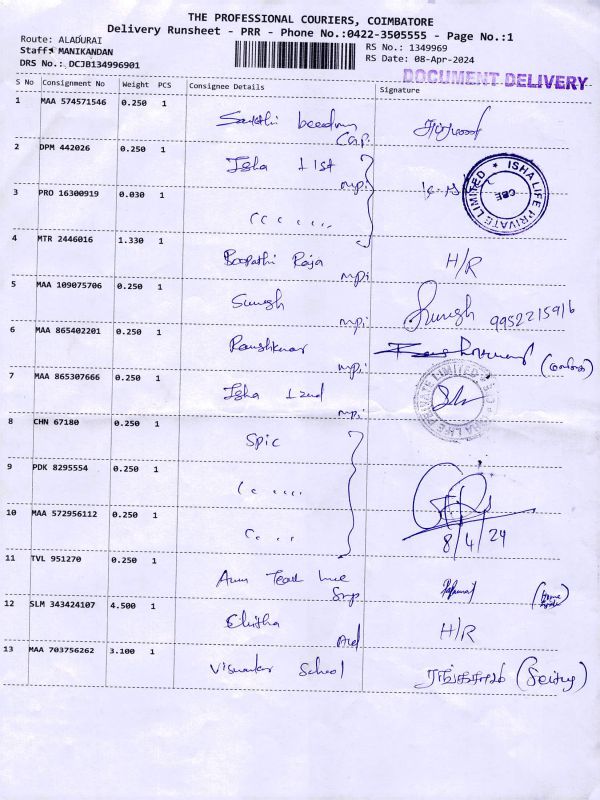 THE PROFESSIONAL COURIERS, COIMBATORE
Delivery Runsheet - PRR - Phone No.:0422-3505555 - Page No.:1
Route: ALADURAI
Staff: MANIKANDAN
DRS No.: DCJB134996901
RS No.: 1349969
RS Date: 08-Apr-2024
DOCUMENT DELIVERY
S No Consignment No Weight PCS Consignee Details Signature
1 MAA 574571546 0.250 1
2 DPM 442026 0.250 1 Isha 1 1st mpi
ISHA LIFE PRIVATE LIMITED * CBE
3 PRO 16300919 0.030 1 " "
4 MTR 2446016 1.330 1 Boopathi Raja mpi H/R
5 MAA 109075706 0.250 1 Suresh mpi Suresh 9952215916
6 MAA 865402201 0.250 1 mpi
7 MAA 865307666 0.250 1 Isha 1 2nd mpi
ISHA LIFE PRIVATE LIMITED
8 CHN 67180 0.250 1 Spic
9 PDK 8295554 0.250 1 " "
10 MAA 572956112 0.250 1 " "
8/4/24
11 TVL 951270 0.250 1
12 SLM 343424107 4.500 1 Chitha H/R
13 MAA 703756262 3.100 1 School